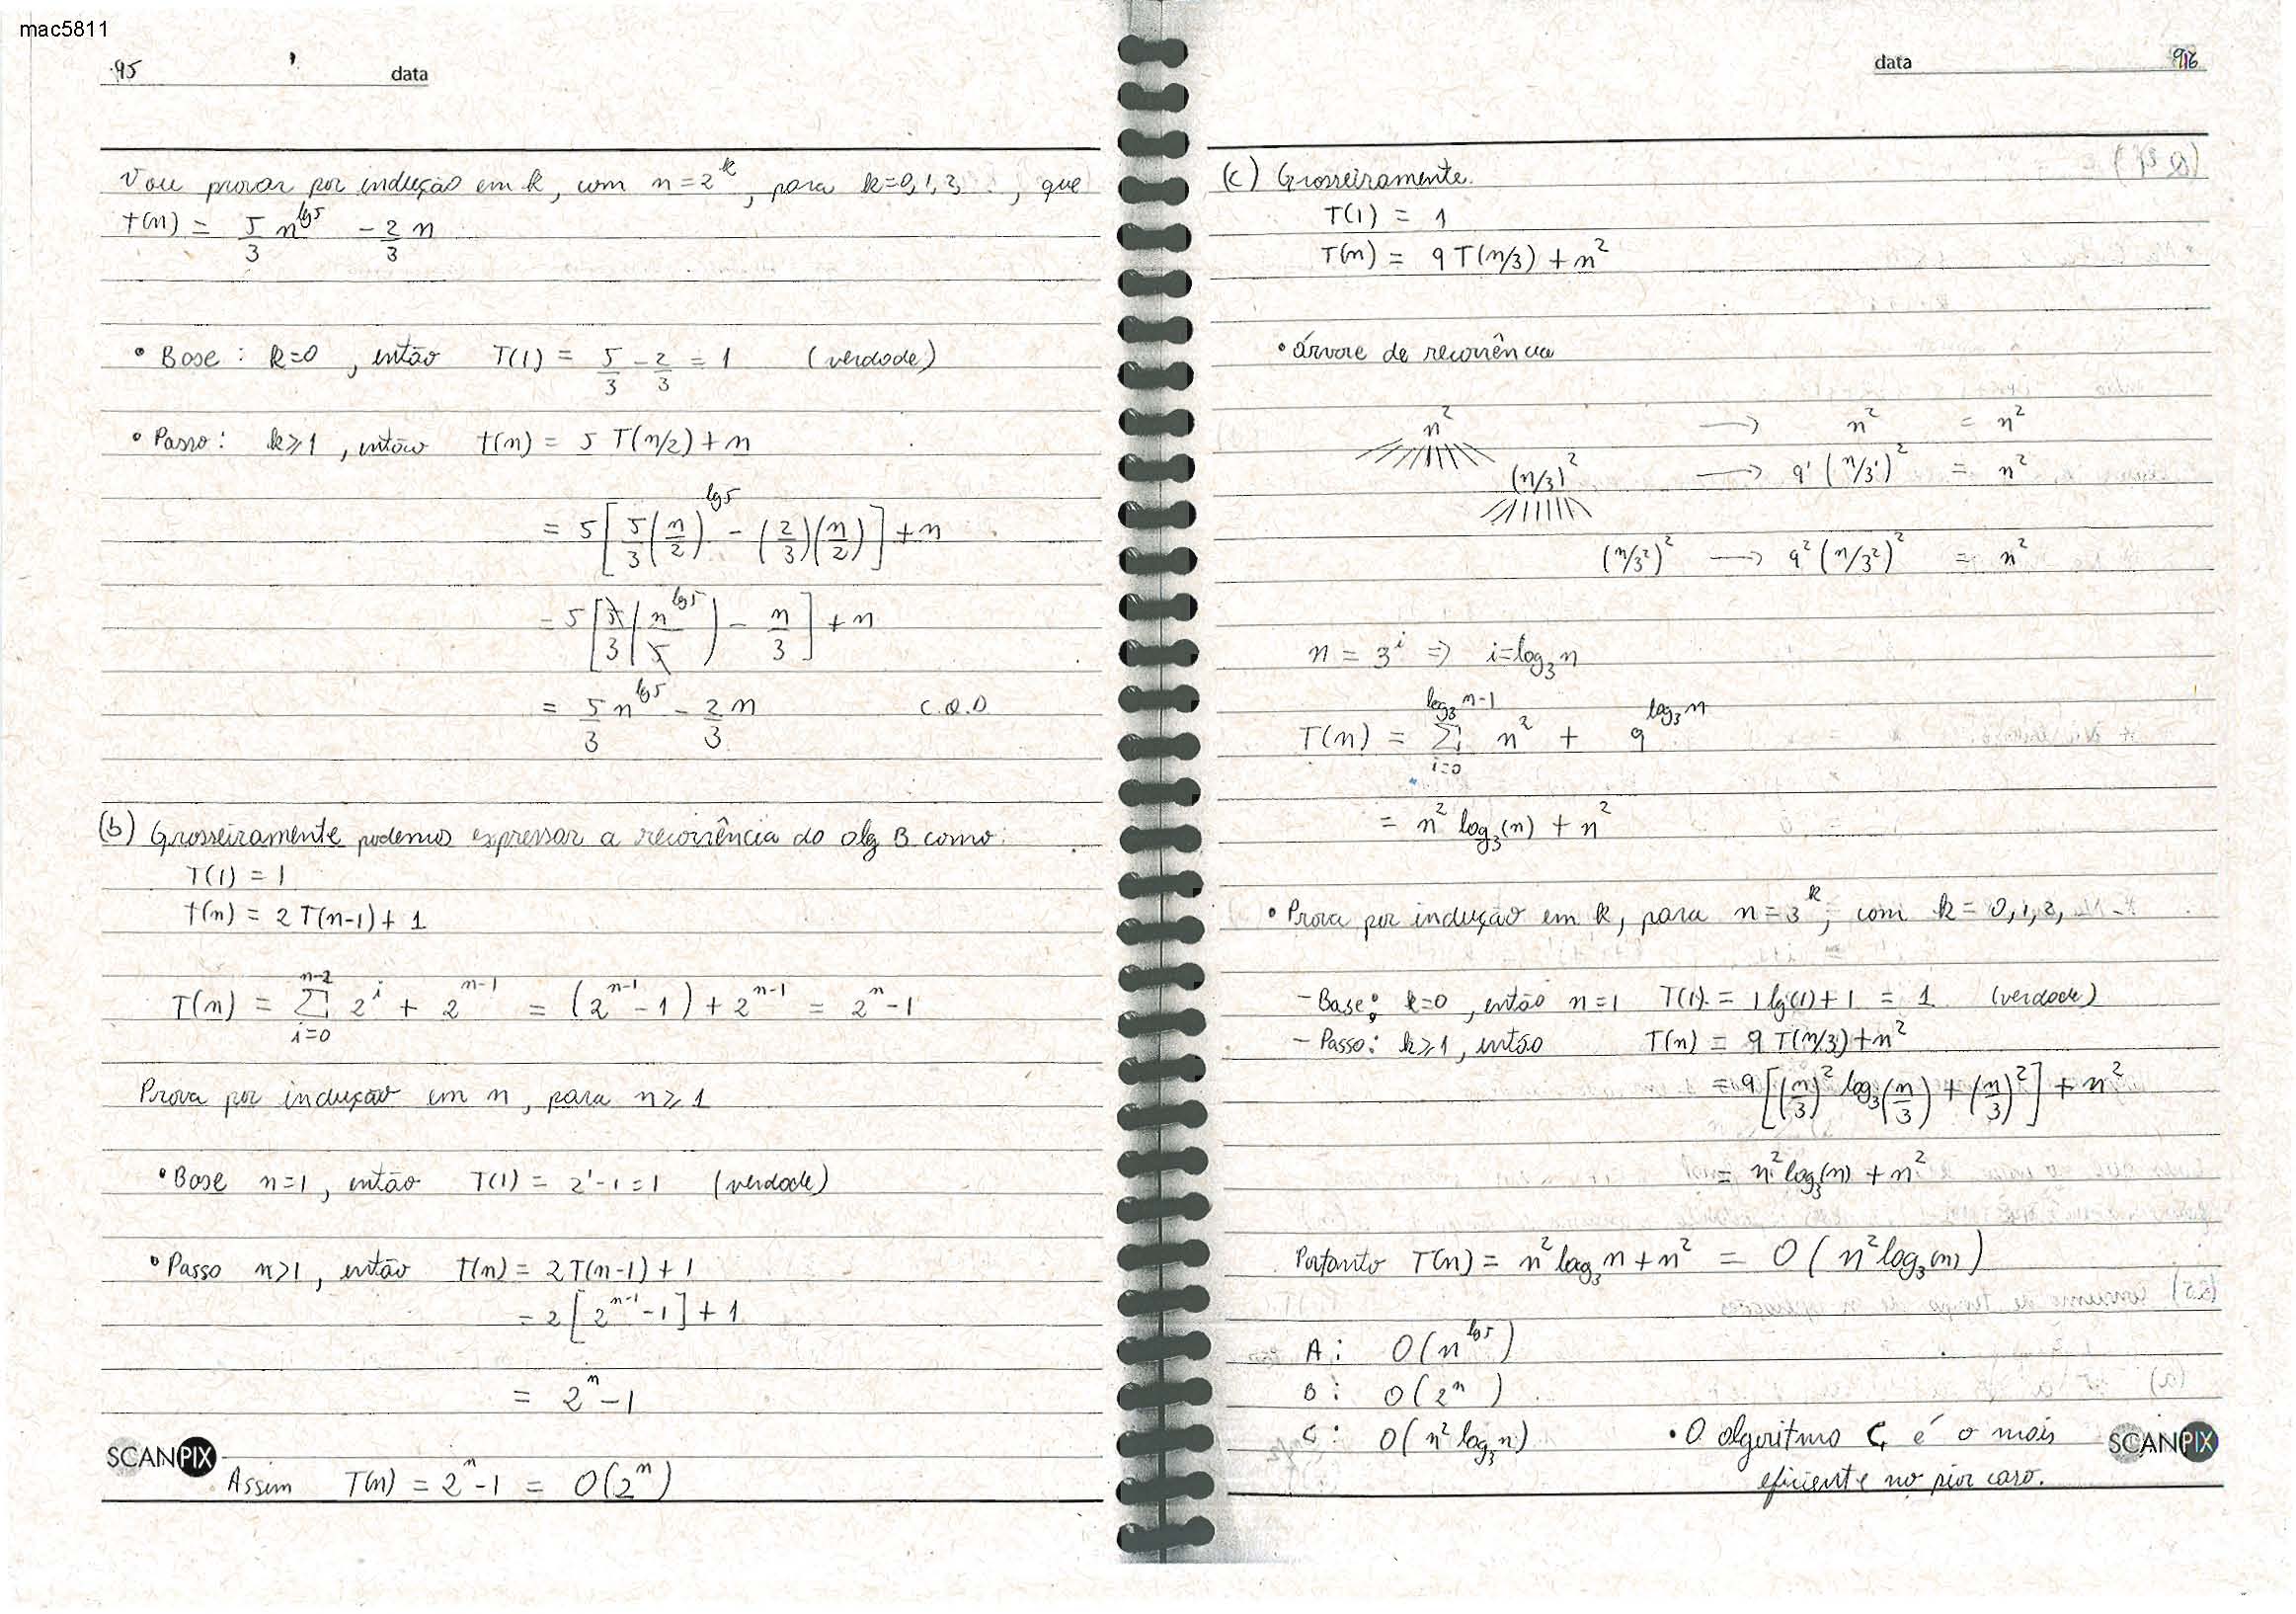 mac5811
95 data
Vou provar por indução em k, com n = 2^k, para k=0,1,2, ..., que
T(n) = 5/3 n^lg5 - 2/3 n
• Base: k=0, então T(1) = 5/3 - 2/3 = 1 (verdade)
• Passo: k≥1, então T(n) = 5 T(n/2) + n
= 5[5/3 (n/2)^lg5 - (2/3)(n/2)] + n
= 5[5/3 (n^lg5/5) - n/3] + n
= 5/3 n^lg5 - 2/3 n C.Q.D
(b) Grosseiramente podemos expressar a recorrência do alg B como:
T(1) = 1
T(n) = 2 T(n-1) + 1
T(n) = Σ_{i=0}^{n-2} 2^i + 2^{n-1} = (2^{n-1} - 1) + 2^{n-1} = 2^n - 1
Prova por indução em n, para n ≥ 1
• Base n=1, então T(1) = 2^1 - 1 = 1 (verdade)
• Passo n>1, então T(n) = 2T(n-1) + 1
= 2[2^{n-1} - 1] + 1
= 2^n - 1
SCANPIX
Assim T(n) = 2^n - 1 = O(2^n)
data 96
(c) Grosseiramente.
T(1) = 1
T(n) = 9 T(n/3) + n^2
• árvore de recorrência
n^2 → n^2 = n^2
(n/3)^2 → 9^1 (n/3^1)^2 = n^2
(n/3^2)^2 → 9^2 (n/3^2)^2 = n^2
n = 3^i ⇒ i = log_3 n
T(n) = Σ_{i=0}^{log_3 n-1} n^2 + 9^{log_3 n}
= n^2 log_3(n) + n^2
• Prova por indução em k, para n = 3^k, com k = 0,1,2,
- Base: k=0, então n=1 T(1) = 1 lg(1) + 1 = 1 (verdade)
- Passo: k≥1, então T(n) = 9 T(n/3) + n^2
= 9[(n/3)^2 log_3(n/3) + (n/3)^2] + n^2
= n^2 log_3(n) + n^2
Portanto T(n) = n^2 log_3 n + n^2 = O(n^2 log_3(n))
A: O(n^lg5)
B: O(2^n)
C: O(n^2 log_3 n) • O algoritmo C é o mais
eficiente no pior caso.
SCANPIX